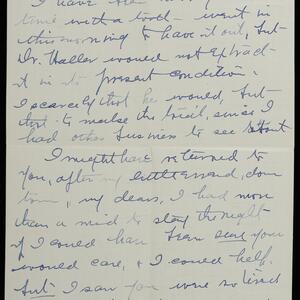 I have
time with a tooth - went in
this morning to have it out, but
Dr. Haller would not extract
it in its present condition.
I scarcely that he would, but
that to make the trial, since I
had other business to see about
I might have returned to
you, after my errand, down
town, my dears, I had more
than a mind to stay the night
if I could have been sure you
would care, & I could help.
But I saw you were so tired